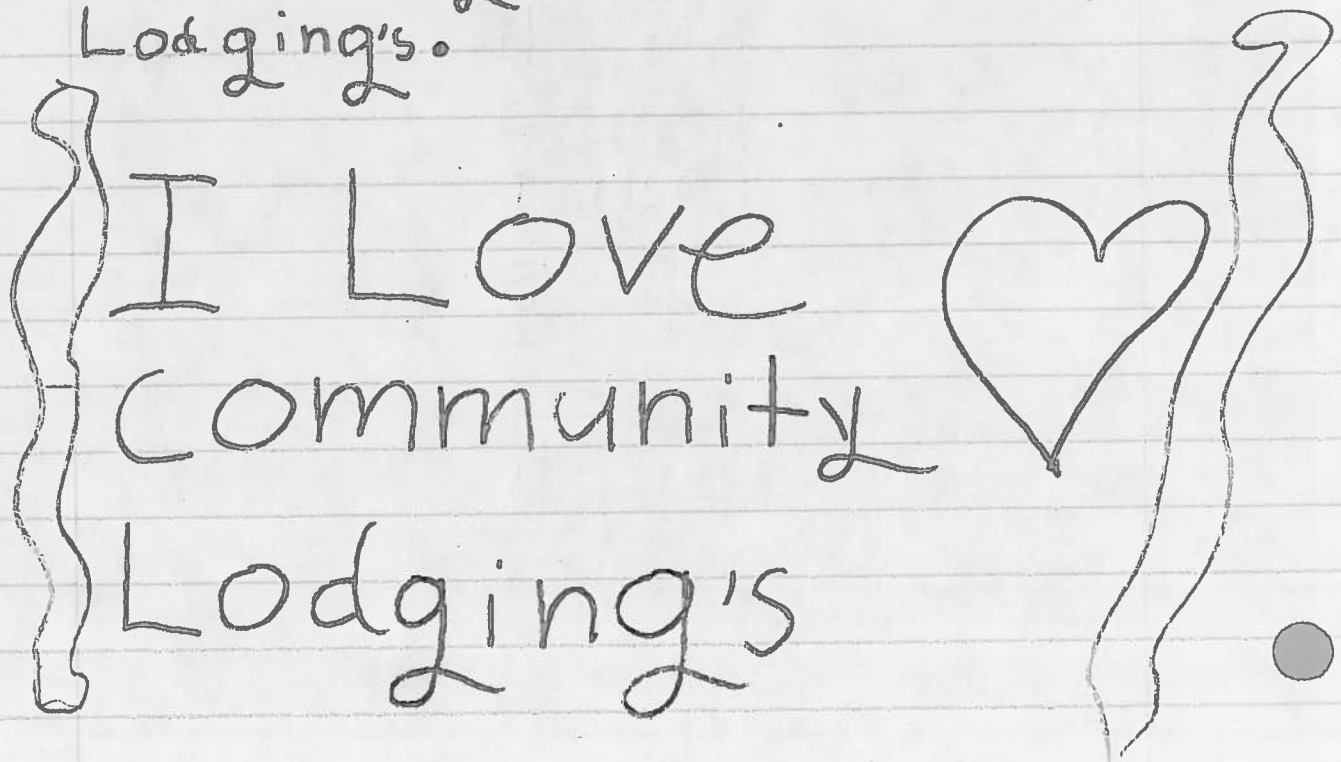 Lodging's.
I Love
Community
Lodging's